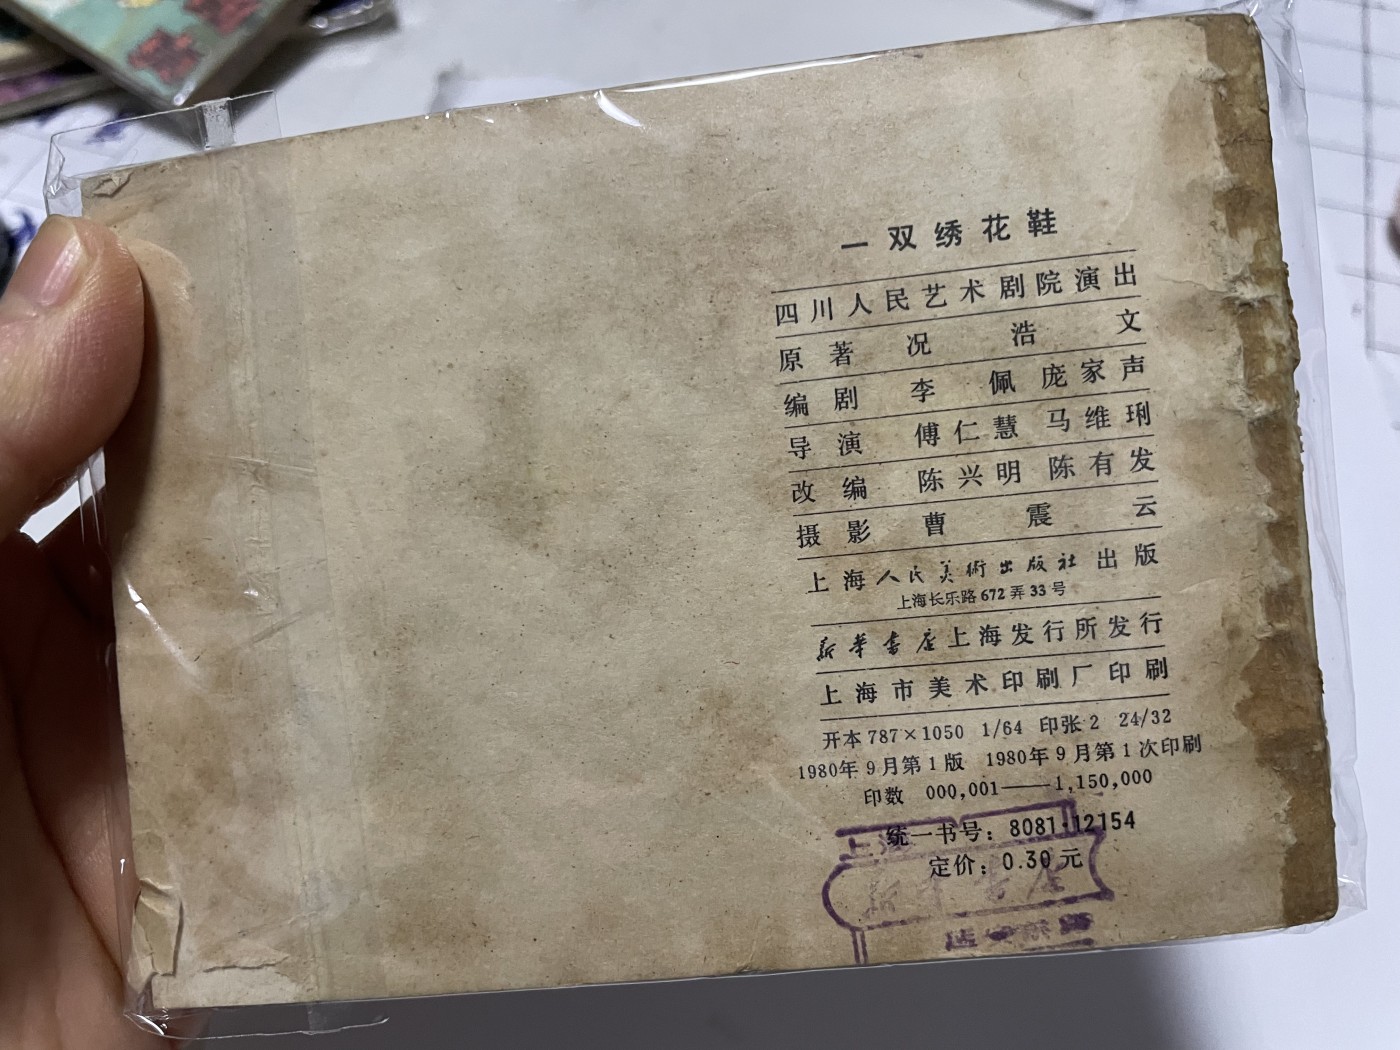 一双绣花鞋
四川人民艺术剧院演出
原著 况浩文
编剧 李佩 庞家声
导演 傅仁慧 马维琍
改编 陈兴明 陈有发
摄影 曹震云
上海人民美術出版社出版
上海长乐路672弄33号
新华书店上海发行所发行
上海市美术印刷厂印刷
开本 787×1050 1/64 印张 2 24/32
1980年9月第1版 1980年9月第1次印刷
印数 000,001——1,150,000
统一书号：8081·12154
定价：0.30元
上海
新华书店